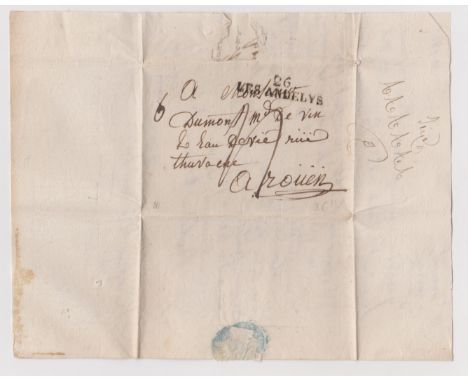 26
LES ANDELYS
A Monsieur
6
Dumont Md De vin
& Eau Devie rüe
thuvache
A roüen